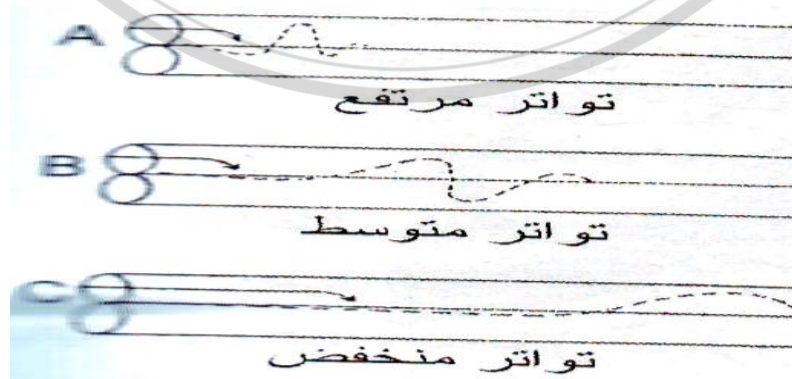 A
تواتر مرتفع
B
تواتر متوسط
C
تواتر منخفض